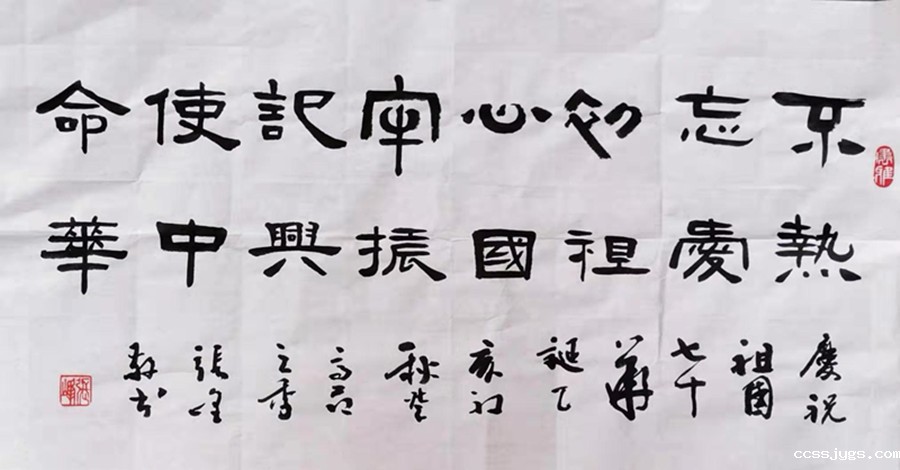 不忘初心牢記使命
熱愛祖國振興中華
慶祝
祖國
七十
華
誕己
亥初
秋
之
張峰
敬書
ccssjugs.com